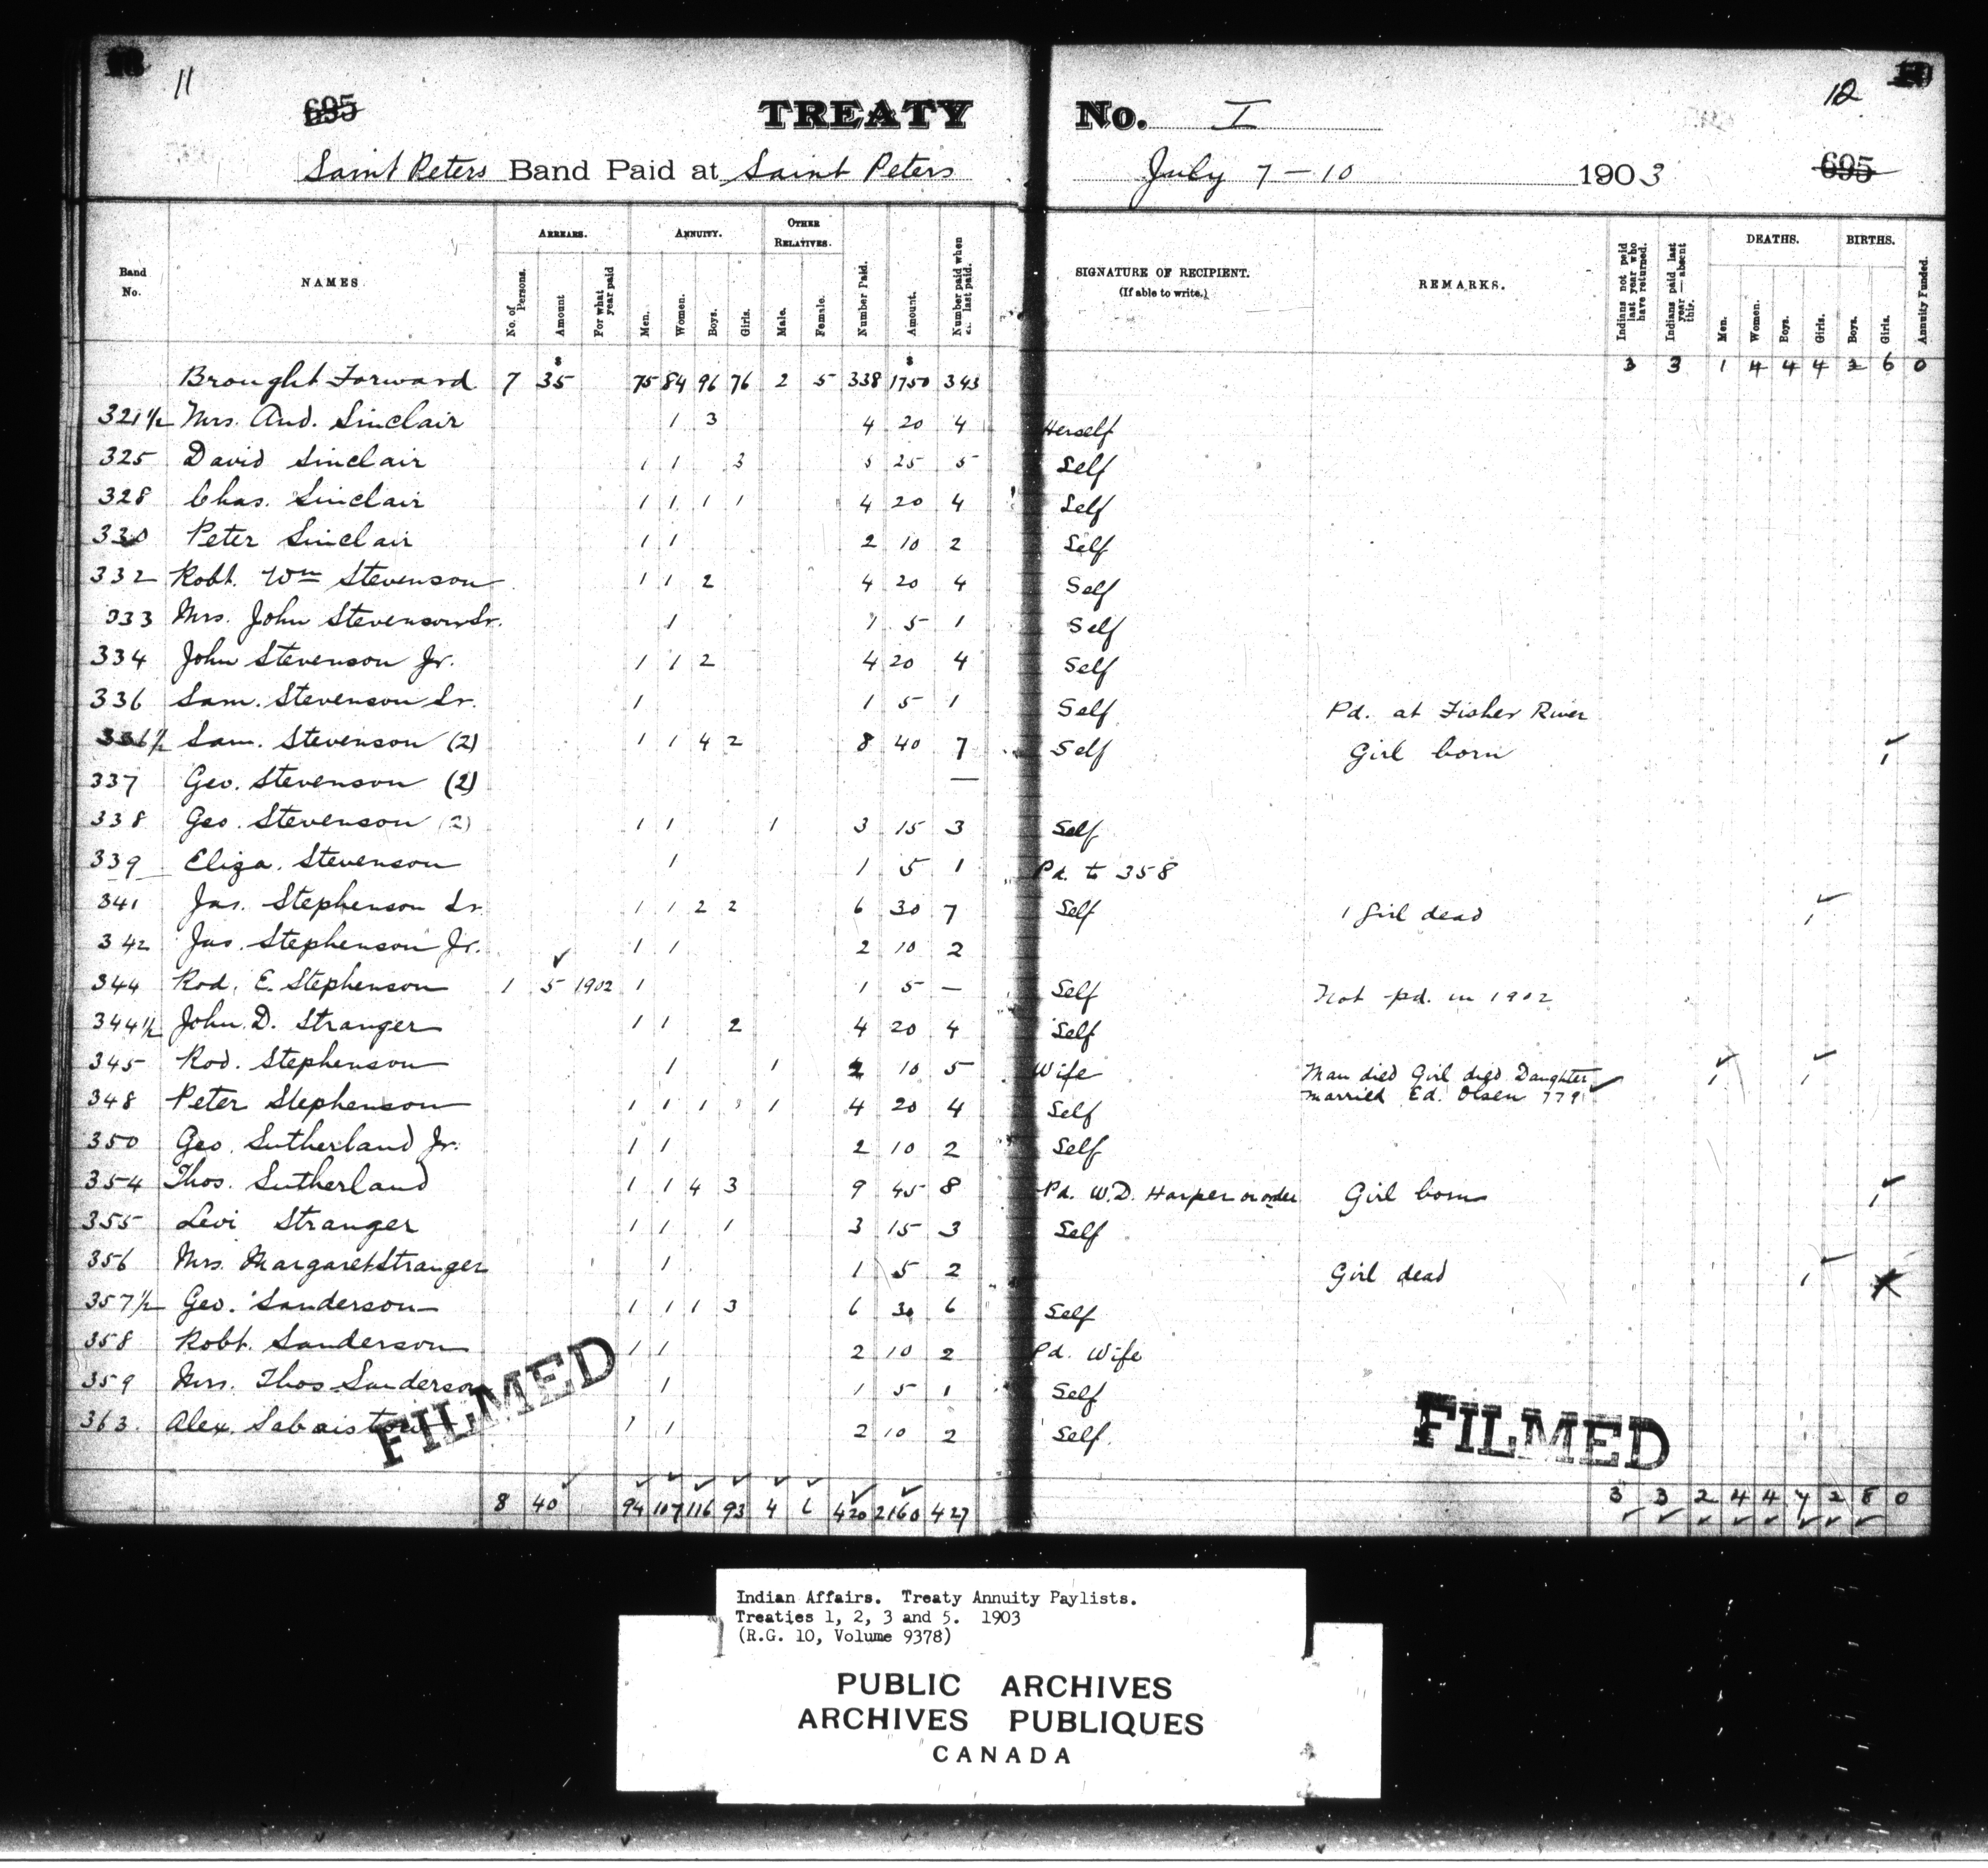 11
12
695
TREATY No. I
Saint Peters Band Paid at Saint Peters July 7 - 10 1903
695
Band No.
NAMES.
ARREARS.
No. of Persons.
Amount
For what year paid
ANNUITY.
Men.
Women.
Boys.
Girls.
OTHER RELATIVES.
Male.
Female.
Number Paid.
Amount.
Number paid when last paid.
SIGNATURE OF RECIPIENT.
(If able to write.)
REMARKS.
Indians not paid last year who have returned.
Indians paid last year — absent this.
DEATHS.
Men.
Women.
Boys.
Girls.
BIRTHS.
Boys.
Girls.
Annuity Funded.
$ $
Brought Forward 7 35 75 84 96 76 2 5 338 1750 343 3 3 1 4 4 4 2 6 0
321½ Mrs. And. Sinclair 1 3 4 20 4 Herself
325 David Sinclair 1 1 3 5 25 5 Self
328 Chas. Sinclair 1 1 1 1 4 20 4 Self
330 Peter Sinclair 1 1 2 10 2 Self
332 Robt. Wm Stevenson 1 1 2 4 20 4 Self
333 Mrs. John Stevenson Sr. 1 1 5 1 Self
334 John Stevenson Jr. 1 1 2 4 20 4 Self
336 Sam. Stevenson Sr. 1 1 5 1 Self Pd. at Fisher River
336½ Sam. Stevenson (2) 1 1 4 2 8 40 7 Self Girl born 1
337 Geo. Stevenson (2) —
338 Geo. Stevenson (2) 1 1 1 3 15 3 Self
339 Eliza. Stevenson 1 1 5 1 Pd. to 358
341 Jas. Stephenson Sr. 1 1 2 2 6 30 7 Self 1 Girl dead 1
342 Jas. Stephenson Jr. 1 1 2 10 2
344 Rod. E. Stephenson 1 5 1902 1 1 5 — Self Not pd. in 1902
344½ John D. Stranger 1 1 2 4 20 4 Self
345 Rod. Stephenson 1 1 2 10 5 Wife Man died Girl died Daughter 1 1
married Ed. Olsen 779
348 Peter Stephenson 1 1 1 1 4 20 4 Self
350 Geo. Sutherland Jr. 1 1 2 10 2 Self
354 Thos. Sutherland 1 1 4 3 9 45 8 Pd. W.D. Harper on order Girl born 1
355 Levi Stranger 1 1 1 3 15 3 Self
356 Mrs. Margaret Stranger 1 1 5 2 Girl dead 1
357½ Geo. Sanderson 1 1 1 3 6 30 6 Self
358 Robt. Sanderson 1 1 2 10 2 Pd. Wife
359 Mrs. Thos Sanderson 1 1 5 1 Self
363. Alex. Sabaiston 1 1 2 10 2 Self.
FILMED
FILMED
8 40 94 107 116 93 4 6 420 2160 427 3 3 2 4 4 7 2 8 0
Indian Affairs. Treaty Annuity Paylists.
Treaties 1, 2, 3 and 5. 1903
(R.G. 10, Volume 9378)
PUBLIC ARCHIVES
ARCHIVES PUBLIQUES
CANADA